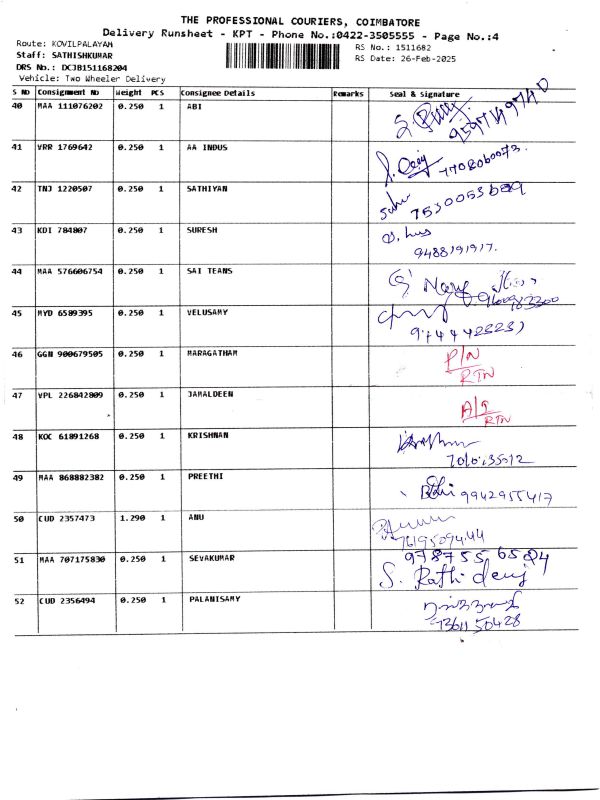 THE PROFESSIONAL COURIERS, COIMBATORE
Delivery Runsheet - KPT - Phone No.:0422-3505555 - Page No.:4
Route: KOVILPALAYAM
RS No.: 1511682
Staff: SATHISHKUMAR
RS Date: 26-Feb-2025
DRS No.: DCJB151168204
Vehicle: Two Wheeler Delivery
S No Consignment No Weight PCS Consignee Details Remarks Seal & Signature
40 MAA 111076202 0.250 1 ABI
41 VRR 1769642 0.250 1 AA INDUS
7708060073.
42 TNJ 1220507 0.250 1 SATHIYAN
43 KDI 784807 0.250 1 SURESH
9488191917.
44 MAA 576606754 0.250 1 SAI TEANS
45 MYD 6589395 0.250 1 VELUSAMY
46 GGN 900679505 0.250 1 MARAGATHAM P/N
RTN
47 VPL 226842809 0.250 1 JAMALDEEN
RTN
48 KOC 61891268 0.250 1 KRISHNAN
49 MAA 868882382 0.250 1 PREETHI
9942955417
50 CUD 2357473 1.290 1 ANU
51 MAA 707175830 0.250 1 SEVAKUMAR
S. Rathi devi
52 CUD 2356494 0.250 1 PALANISAMY